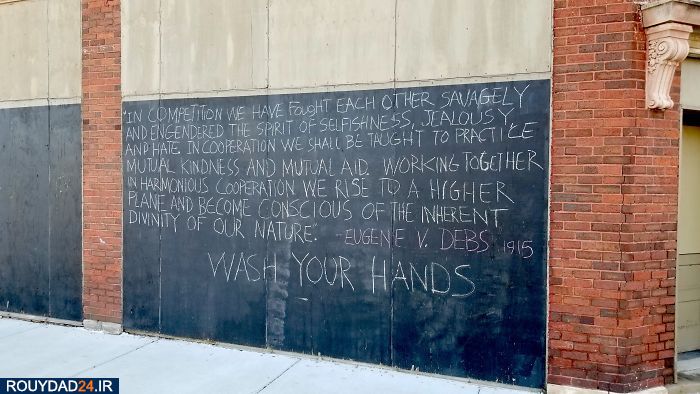 "IN COMPETITION WE HAVE FOUGHT EACH OTHER SAVAGELY
AND ENGENDERED THE SPIRIT OF SELFISHNESS, JEALOUSY
AND HATE. IN COOPERATION WE SHALL BE TAUGHT TO PRACTICE
MUTUAL KINDNESS AND MUTUAL AID. WORKING TOGETHER
IN HARMONIOUS COOPERATION WE RISE TO A HIGHER
PLANE AND BECOME CONSCIOUS OF THE INHERENT
DIVINITY OF OUR NATURE." -EUGENE V. DEBS 1915
WASH YOUR HANDS
ROUYDAD24.IR